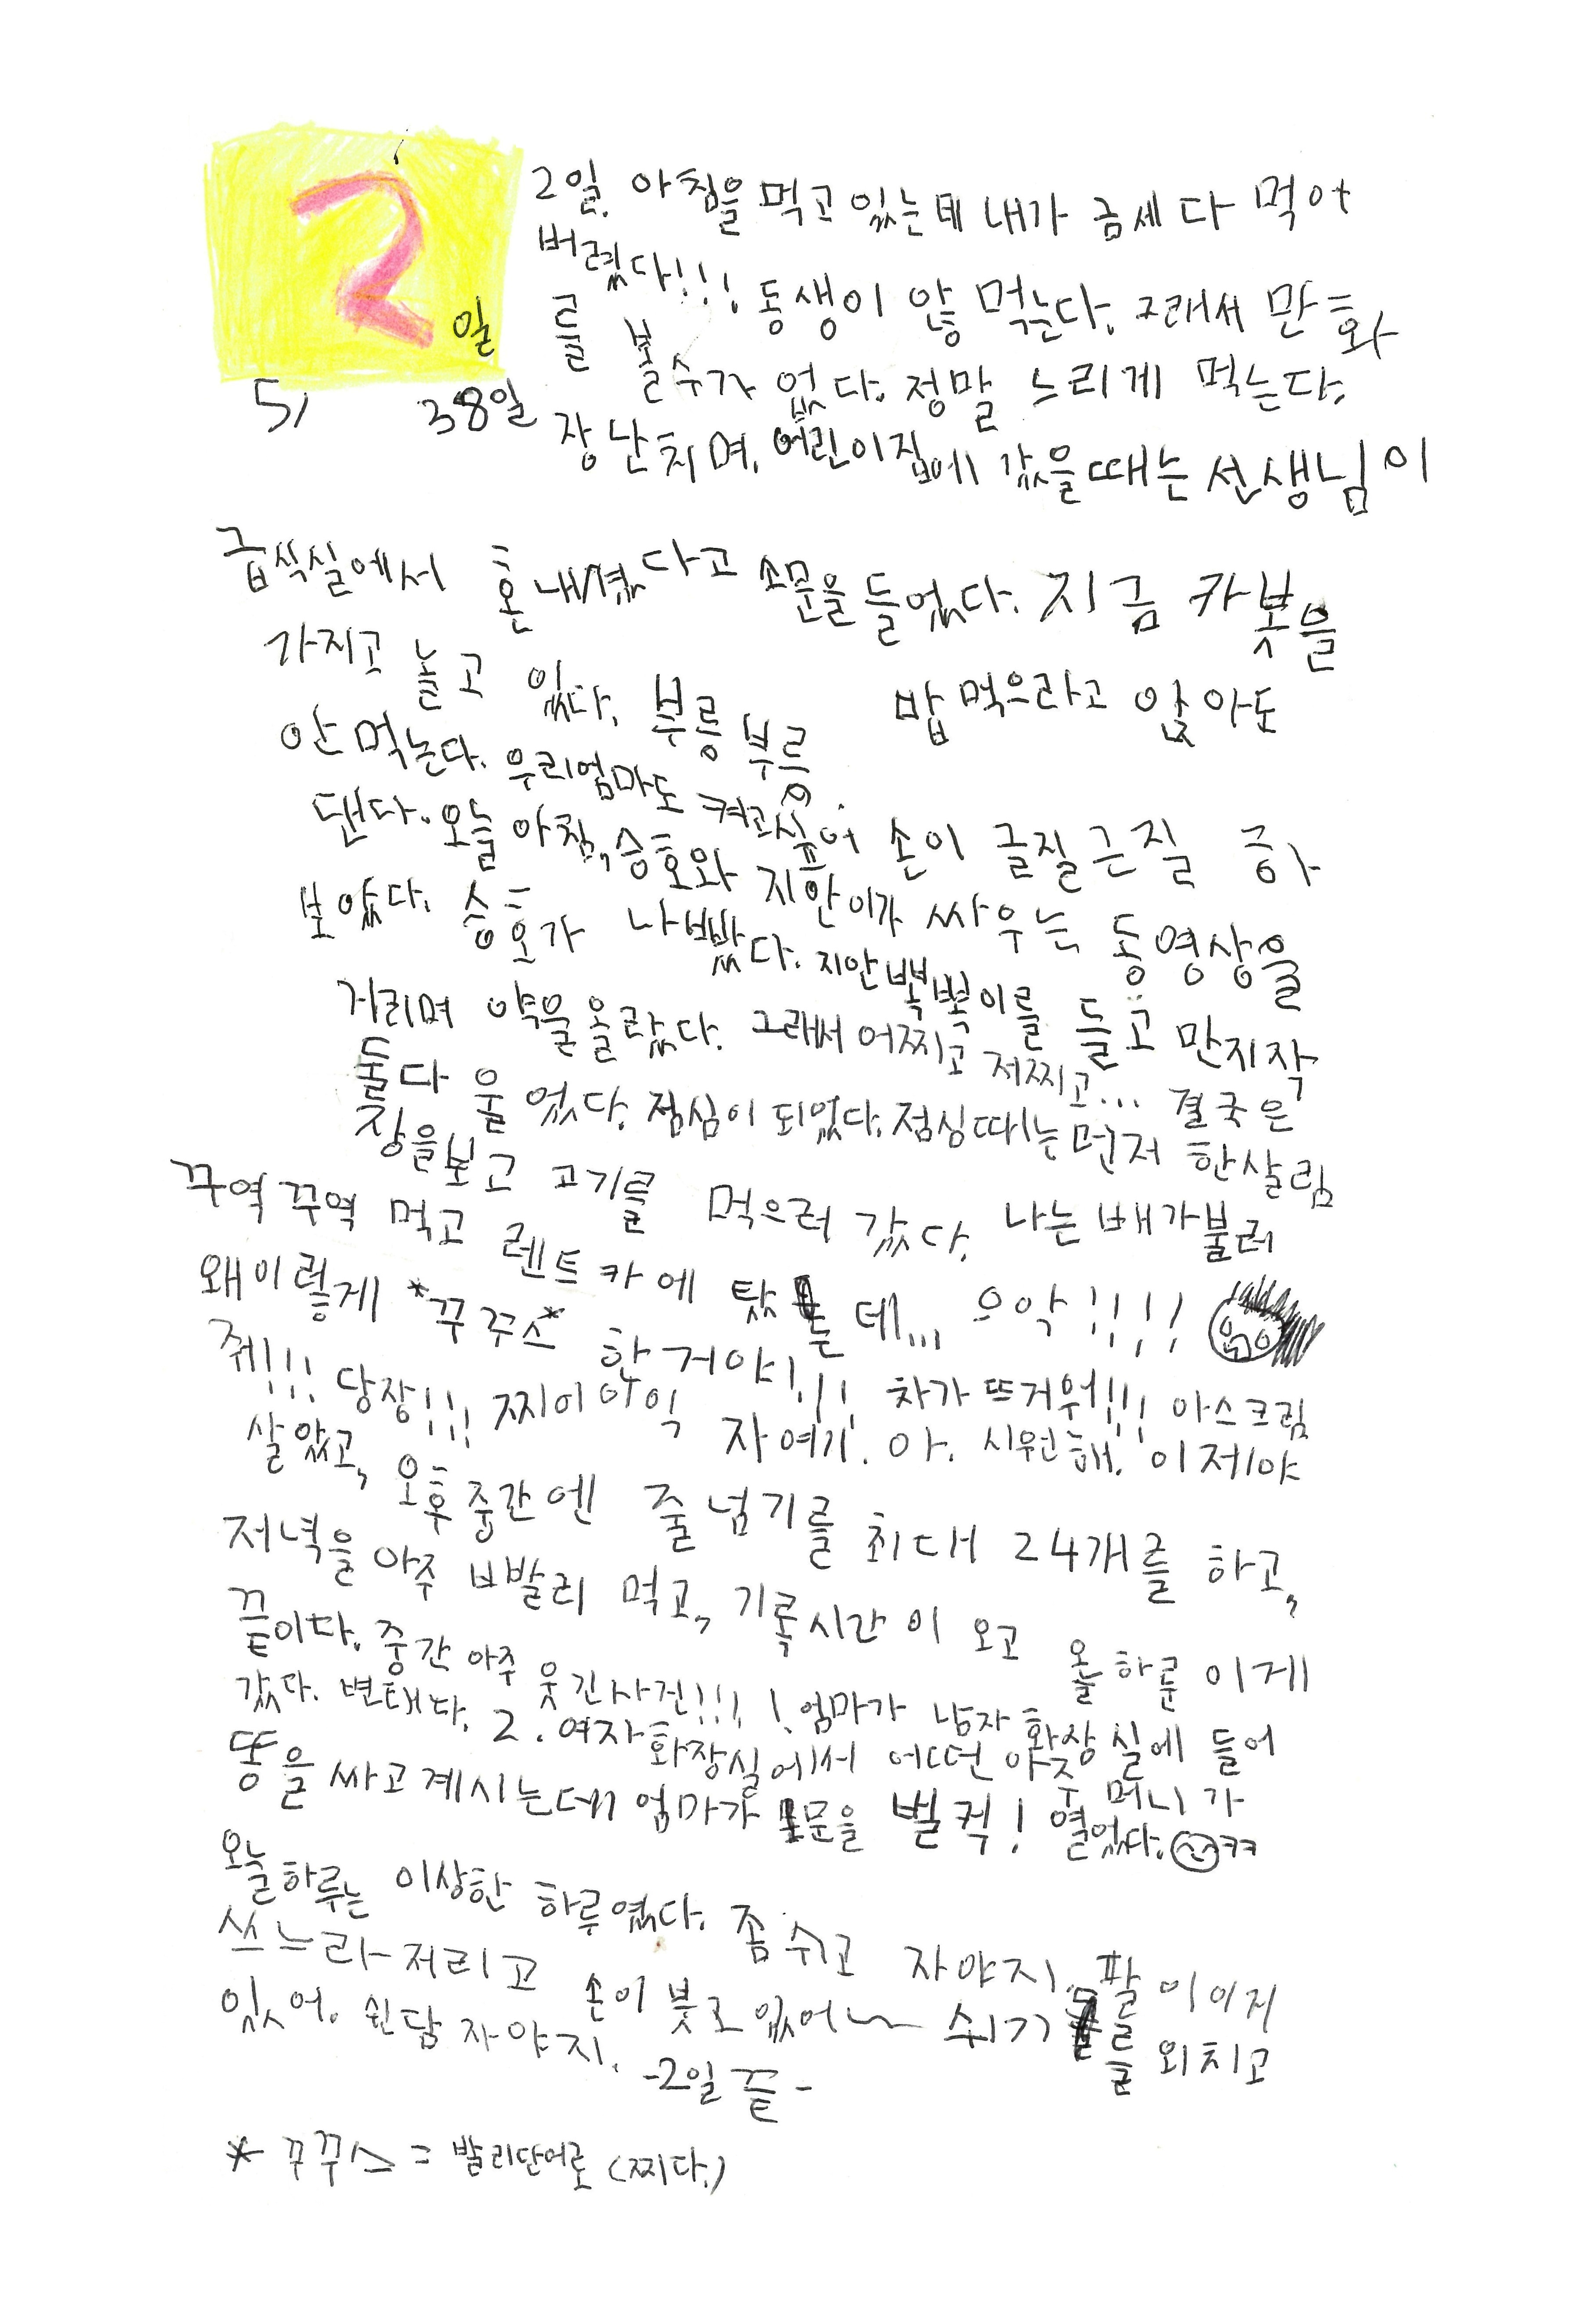 2일
5/ 38일
2일. 아침을 먹고 있는데 내가 금세 다 먹어
버렸다!!! 동생이 않 먹는다. 그래서 만화
를 볼수가 없다. 정말 느리게 먹는다.
장난치며. 어린이집에 갔을때는 선생님이
급식실에서 혼내셨다고 소문을 들었다. 지금 카봇을
가지고 놀고 있다. 부릉 부릉 밥 먹으라고 앉아도
안 먹는다. 우리엄마도 켜고싶어 손이 글질 근질 하
댄다. 오늘 아침, 승호와 지안이가 싸우는 동영상을
보았다. 승호가 나빴다. 지안 뽁뽁이를 들고 만지작
거리며 약을 올랐다. 그래서 어찌고 저찌고... 결국은
둘다 울었다. 점심이 되었다. 점싱때는 먼저 한살림
장을보고 고기를 먹으러 갔다. 나는 배가불러
꾸역꾸역 먹고 렌트카에 탔는데... 으악!!!!
왜이렇게 *꾸꾸스* 한거야!!!! 차가 뜨거워!!!! 아스크림
줘!!! 당장!!! 찌이이익 자 여기. 아. 시원해. 이제야
살았고, 오후중간엔 줄넘기를 최대 24개를 하고,
저녁을 아주 빠빨리 먹고, 기록시간이 오고 올하룬 이게
끝이다. 중간 아주 웃긴사건!!! 1. 엄마가 남자화장실에 들어
갔다. 변태다. 2. 여자화장실에서 어떤 아주머니가
똥을 싸고계시는데 엄마가 문을 벌컥! 열었다. ㅋㅋ
오늘하루는 이상한 하루였다. 좀 쉬고 자야지. 팔이이거
쓰느라 저리고 손이 붓고 있어~ 쉬기를 외치고
있어. 쉰담 자야지. -2일 끝-
* 꾸꾸스 = 발리단어로 (찌다.)